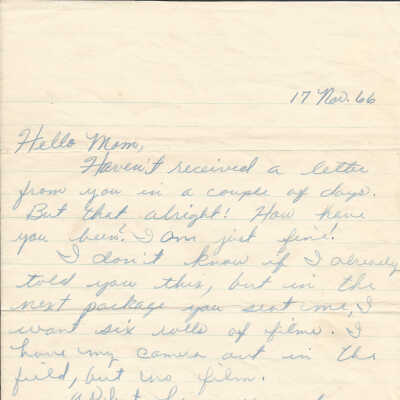 17 Nov. 66
Hello Mom,
Haven't received a letter
from you in a couple of days.
But that alright! How have
you been? I am just fine!
I don't know if I already
told you this, but in the
next package you sent me, I
want six rolls of films. I
have my camera out in the
field, but no film.